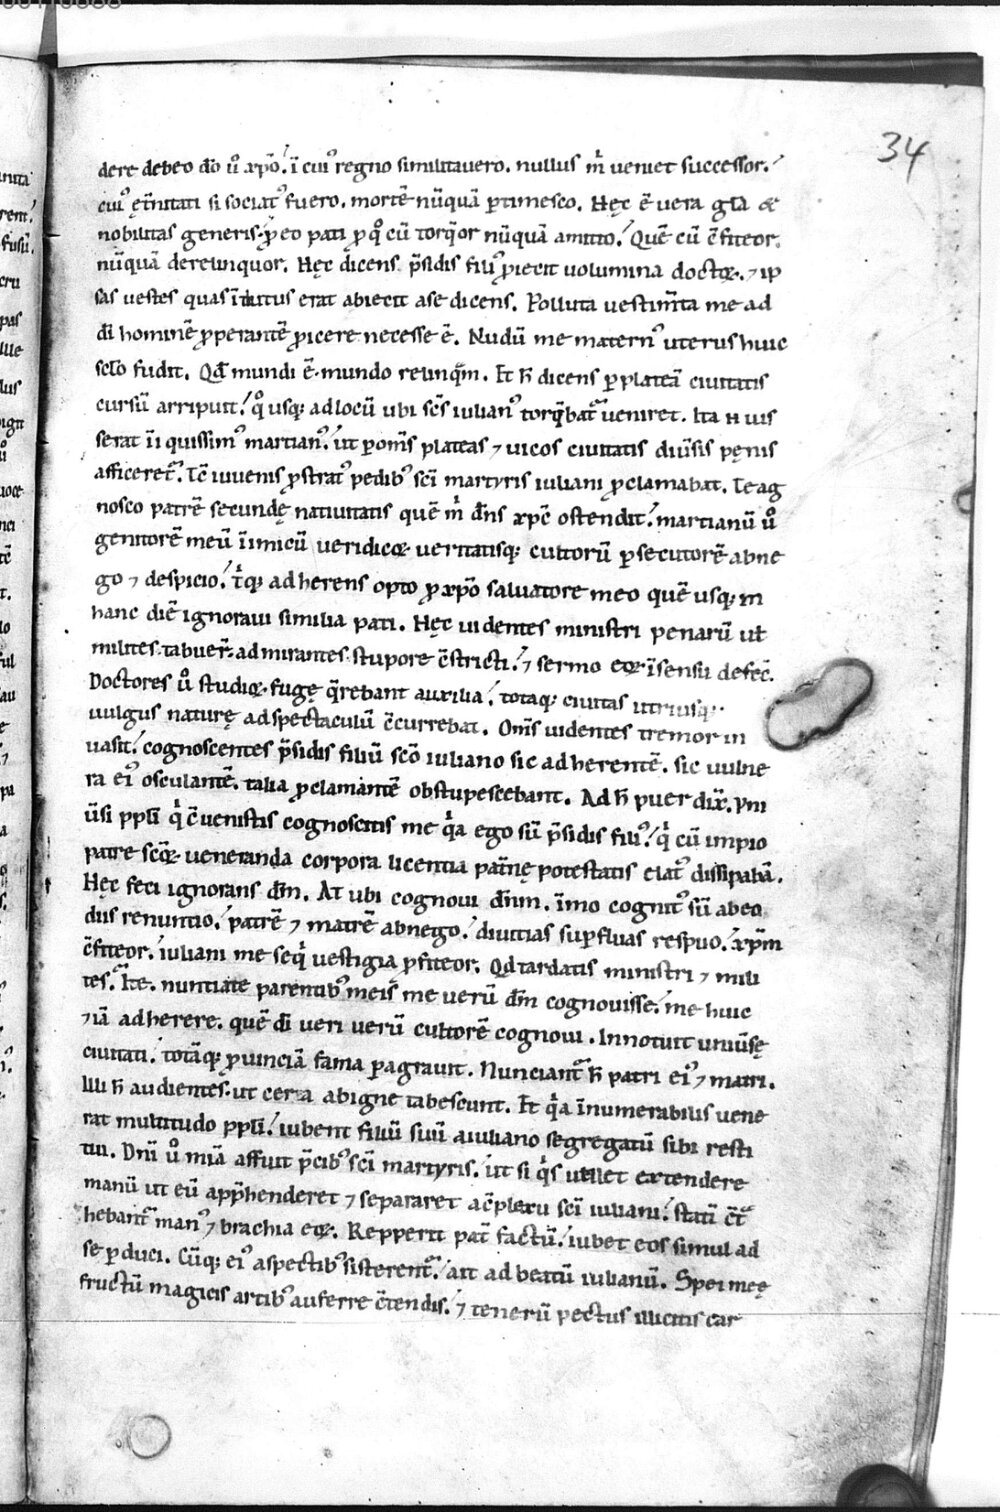 34
dere debeo dō ů xp̄o. ī cui' regno similitauero. nullus m̊ ueniet successor.
cui' ęt̄nitati si sociat' fuero. mortē nūquā p̱timesco. Hęc ē uera gl̄a &
nobilitas generis. p̱ eo pati p̱ q̊ cū torq̄or nūquā amitto. Quē cū c̄fiteor.
nūquā derelinquor. Hęc dicens p̄sidis fili' p̱iecit uolumina doctoꝝ. ⁊ ip
sas uestes quas īdutus erat abiecit a se dicens. Polluta uestim̄ta me ad
dī hominē p̱perantē p̱icere necesse ē. Nudū me matern' uterus huic
sc̄lo fudit. Qđ mundi ē. mundo relinq̄m. Et ħ dicens p̱ plateā ciuitatis
cursū arripuit. q̊ usq; ad locū ubi sc̄s iulian' torq̄bat̃ ueniret. Ita n̄ uis
serat īiquissim' martian'. ut p̱ om̄s plateas ⁊ uicos ciuitatis diūsis pęnis
afficeret̃. Tc̄ iuuenis p̱strat' pedib' sc̄i martyris iuliani p̱clamabat. Te ag
nosco patrē secundę natiuitatis quē m̊ dn̄s xp̄c ostendit. martianū ů
genitorē meū īimicū ueridicoꝝ ueritatisq; cultorū p̱secutorē abne
go ⁊ despicio. t̊q; adherens opto p̱ xp̄o saluatore meo quē usq; in
hanc diē ignoraui similia pati. Hęc uidentes ministri penarū uł
milites. tabuer̄. admirantes. stupore c̄stricti. ⁊ sermo eoꝝ ī sensu defec̄.
Doctores ů studioꝝ. fugę q̄rebant auxilia. totaq; ciuitas utriusq;
uulgus naturę ad spectaculū c̄currebat. Om̄s uidentes tremor in
uasit. cognoscentes p̄sidis filiū sc̄o iuliano sic adherentē. sic uulne
ra ei' osculantē. talia p̱clamantē obstupescebant. Ad ħ puer dix̄. Vni
ūsi pp̄li q̊ c̄uenistis cognoscitis me q̊a ego sū p̄sidis fili'. q̊ cū impio
patre sc̄oꝝ. ueneranda corpora licentia pat̄nę potestatis elat' dissipabā.
Hęc feci ignorans dm̄. At ubi cognoui dn̄m. īmo cognit' sū ab eo
diis renuntio. patrē ⁊ matrē abnego. diuitias sup̱fluas respuo. xp̄m
c̄fiteor. iuliani me seq̊ uestigia p̱fiteor. Qđ tardatis ministri ⁊ mili
tes. Ite. nuntiate parentib' meis me uerū dm̄ cognouisse. me huic
⁊iā adherere. quē dī ueri uerū cultorē cognoui. Innotuit uniūsę
ciuitati. totāq; p̱uinciā fama p̱agrauit. Nunciant̃ ħ patri ei' ⁊ matri.
Illi ħ audientes. ut cera ab igne tabescunt. Et q̊a īnumerabilis uene
rat multitudo pp̄li. iubent filiū suū a iuliano segregatū sibi resti
tui. Dn̄i ů mīa affuit p̄cib' sc̄i martyris. ut si q̊s uellet extendere
manū ut eū app̄henderet ⁊ separaret a c̄plexu sc̄i iuliani. statī c̄t̃
hebant̃ man' ⁊ brachia eoꝝ. Repperit pat̃ factū. iubet eos simul ad
se p̱duci. Cūq; ei' aspectib' sisterent̃. ait ad beatū iulianū. Spei meę
fructū magicis artib' auferre c̄tendis. ⁊ tenerū pectus illicitis car